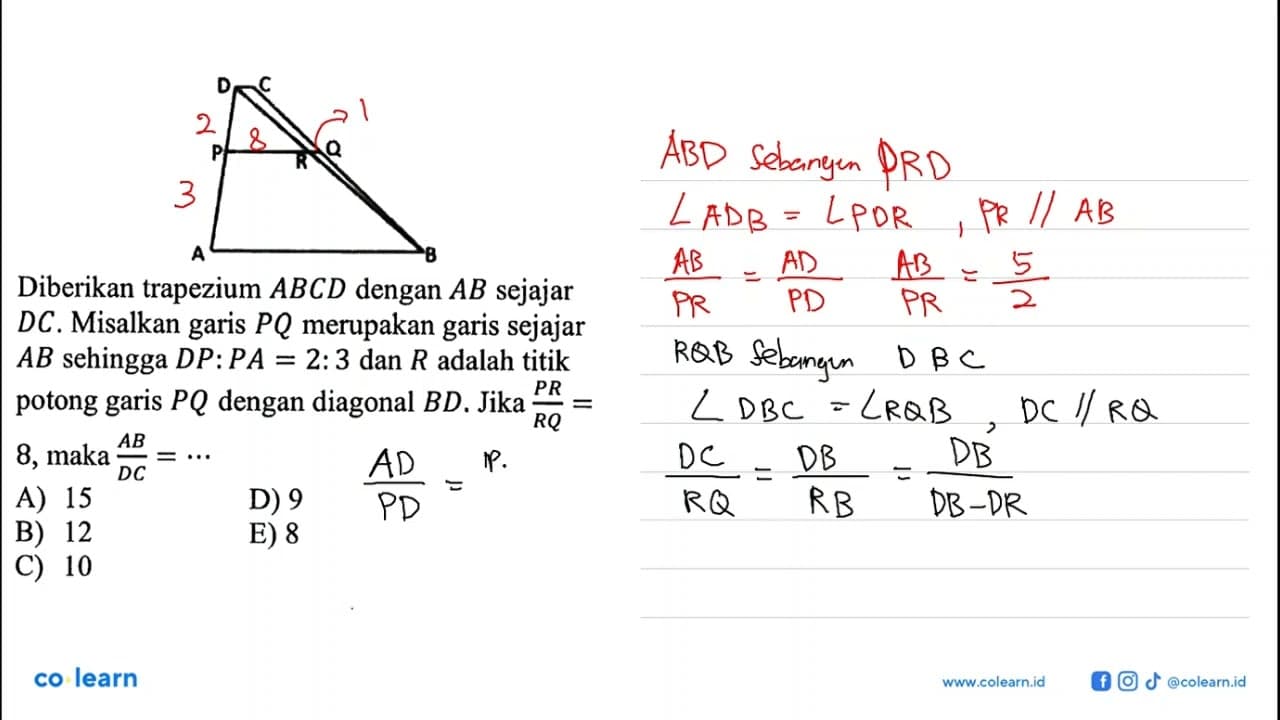 D C
2 8 1
P R Q
3
A B
Diberikan trapezium ABCD dengan AB sejajar
DC. Misalkan garis PQ merupakan garis sejajar
AB sehingga DP: PA = 2: 3 dan R adalah titik
potong garis PQ dengan diagonal BD. Jika PR/RQ =
8, maka AB/DC = ...
A) 15 D) 9
B) 12 E) 8
C) 10
AD/PD =
ABD sebangun PRD
∠ADB = ∠PDR , PR // AB
AB/PR = AD/PD AB/PR = 5/2
RQB sebangun DBC
∠DBC = ∠RQB , DC // RQ
DC/RQ = DB/RB = DB/DB-DR
co learn
www.colearn.id @colearn.id